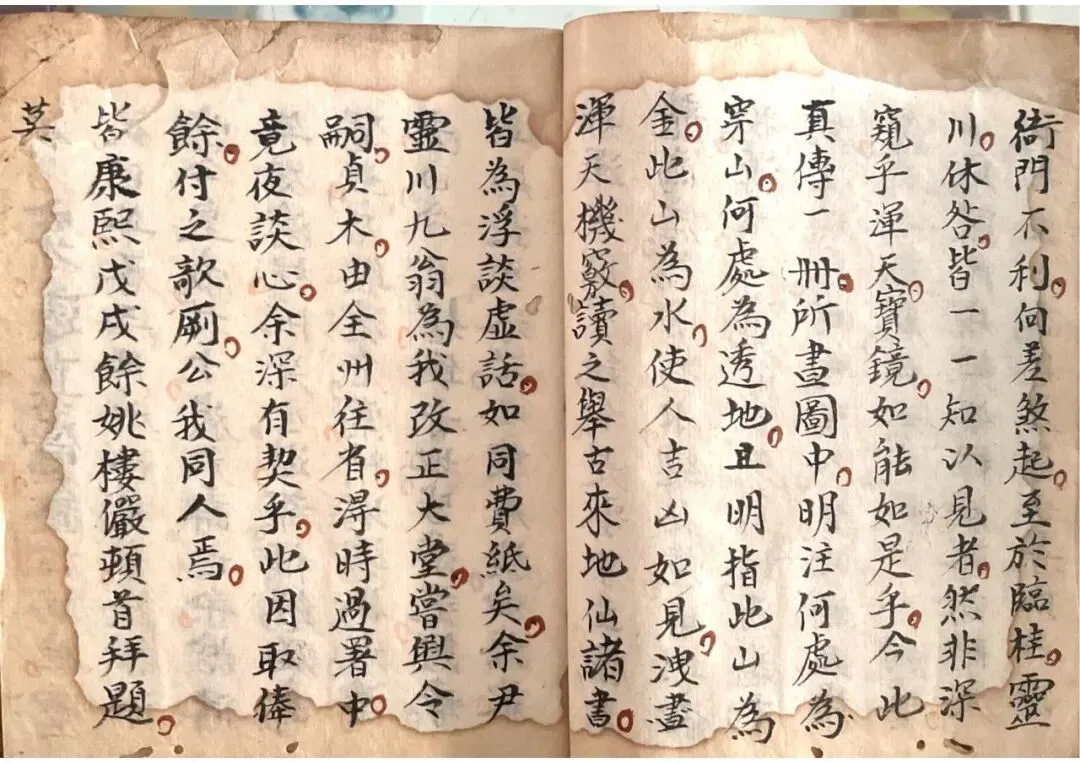 衙門不利何差煞起至於臨桂靈
川休咎皆一一知以見者然非深
窺乎渾天寶鏡如能如是乎今此
真傳一冊所畫圖中明注何處為
穿山何處為透地且明指此山為
金此山為水使人吉凶如見洩盡
渾天機竅讀之舉古來地仙諸書
皆為浮談虛話如同費紙矣余尹
靈川九翁為我改正大堂嘗與令
嗣貞木由全州往省得時過署中
竟夜談心余深有契乎此因取俸
餘付之歌劂公我同人焉
皆康熙戊戌餘姚樓儼頓首拜題
莫